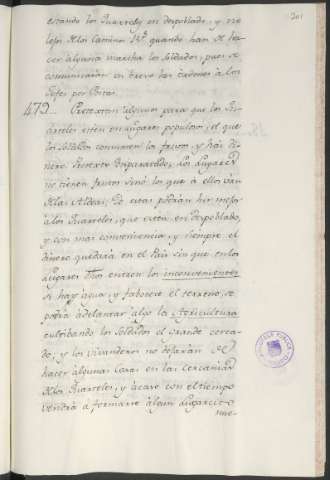 201
estando los Quarteles en despoblado, y no
lejos de los Caminos R.s quando han de ha-
cer alguna marcha los Soldados, pues se
comunicarán en breve las ordenes á los
Gefes por Postas.
479. Pretextan algunos para que los Qu-
arteles esten en Lugares populosos, el que
los Soldados consumen los frutos, y hai di-
nero. Pretexto disparatado; los Lugares
no tienen frutos sinó los que á ellos van
de las Aldeas; De estas podrán hir mejor
á los Quarteles, que esten en despoblado,
y con mas conveniencia, y siempre el
dinero quedará en el Pais sin que en los
Lugares entren los inconvenientes
si hay agua, y faborece el terreno, se
podrá adelantar algo la Agricultura
cultibando los Soldados el grande cerca-
do, y los vivanderos no dejarán de
hacer algunas Casas en las cercanias
de los Quarteles, y acaso con el tiempo
vendrá á formarse algun Lugarcito
nue-